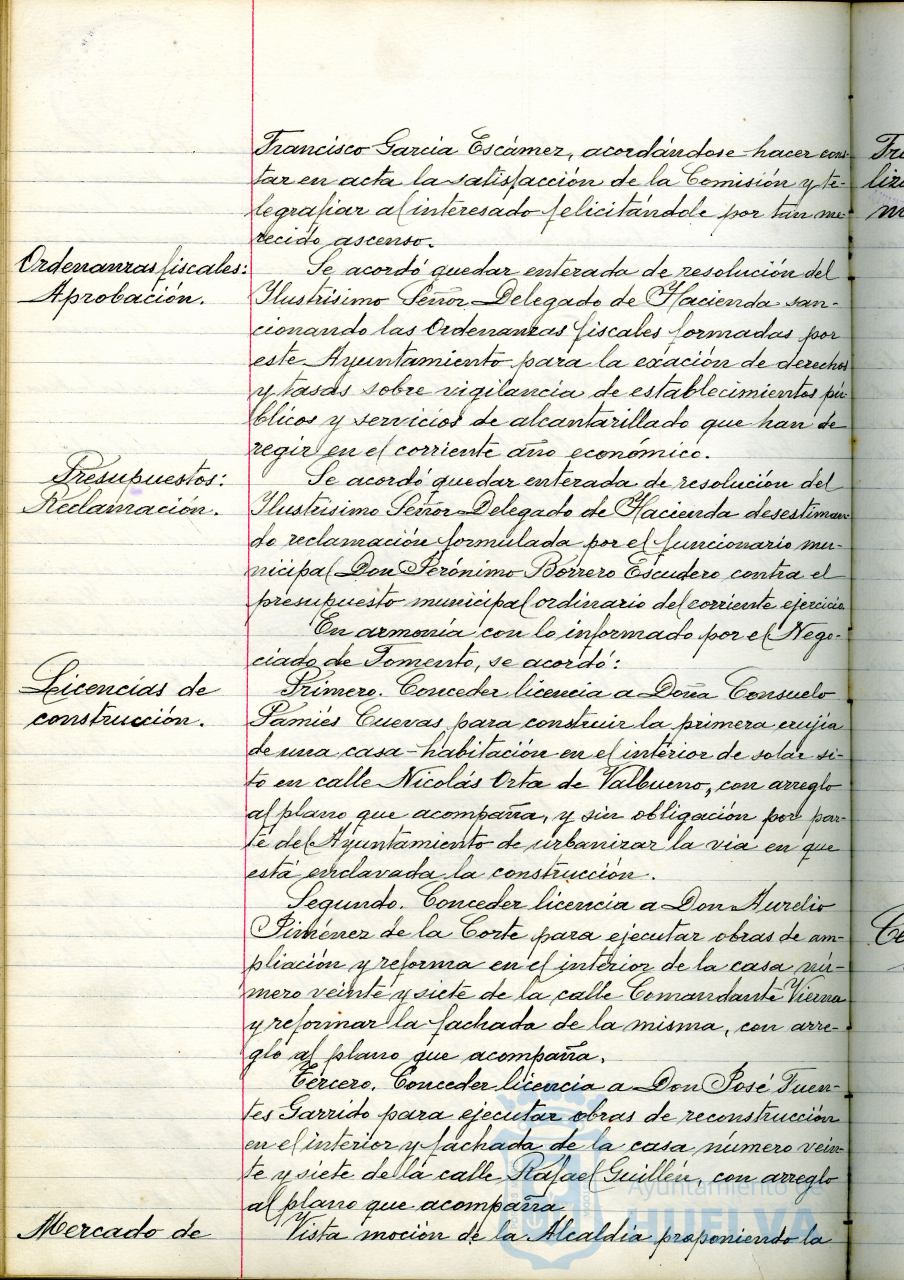 Francisco García Escámez, acordándose hacer cons-
tar en acta la satisfacción de la Comisión y te-
legrafiar al interesado felicitándole por tan me-
recido ascenso.
Ordenanzas fiscales:
Aprobación.
Se acordó quedar enterada de resolución del
Ilustrísimo Señor Delegado de Hacienda san-
cionando las Ordenanzas fiscales formadas por
este Ayuntamiento para la exacción de derechos
y tasas sobre vigilancia de establecimientos pú-
blicos y servicios de alcantarillado que han de
regir en el corriente año económico.
Presupuestos:
Reclamación.
Se acordó quedar enterada de resolución del
Ilustrísimo Señor Delegado de Hacienda desestiman-
do reclamación formulada por el funcionario mu-
nicipal Don Jerónimo Borrero Escudero contra el
presupuesto municipal ordinario del corriente ejercicio.
En armonía con lo informado por el Nego-
ciado de Fomento, se acordó:
Licencias de
construcción.
Primero. Conceder licencia a Doña Consuelo
Pamiés Cuevas para construir la primera crujía
de una casa-habitación en el interior de solar si-
to en calle Nicolás Orta de Valbueno, con arreglo
al plano que acompaña, y sin obligación por par-
te del Ayuntamiento de urbanizar la vía en que
está enclavada la construcción.
Segundo. Conceder licencia a Don Aurelio
Jiménez de la Corte para ejecutar obras de am-
pliación y reforma en el interior de la casa nú-
mero veinte y siete de la calle Comandante Vierna
y reformar la fachada de la misma, con arre-
glo al plano que acompaña.
Tercero. Conceder licencia a Don José Fuen-
tes Garrido para ejecutar obras de reconstrucción
en el interior y fachada de la casa número vein-
te y siete de la calle Rafael Guillén, con arreglo
al plano que acompaña
Mercado de
Vista moción de la Alcaldía proponiendo la
Ayuntamiento de
HUELVA